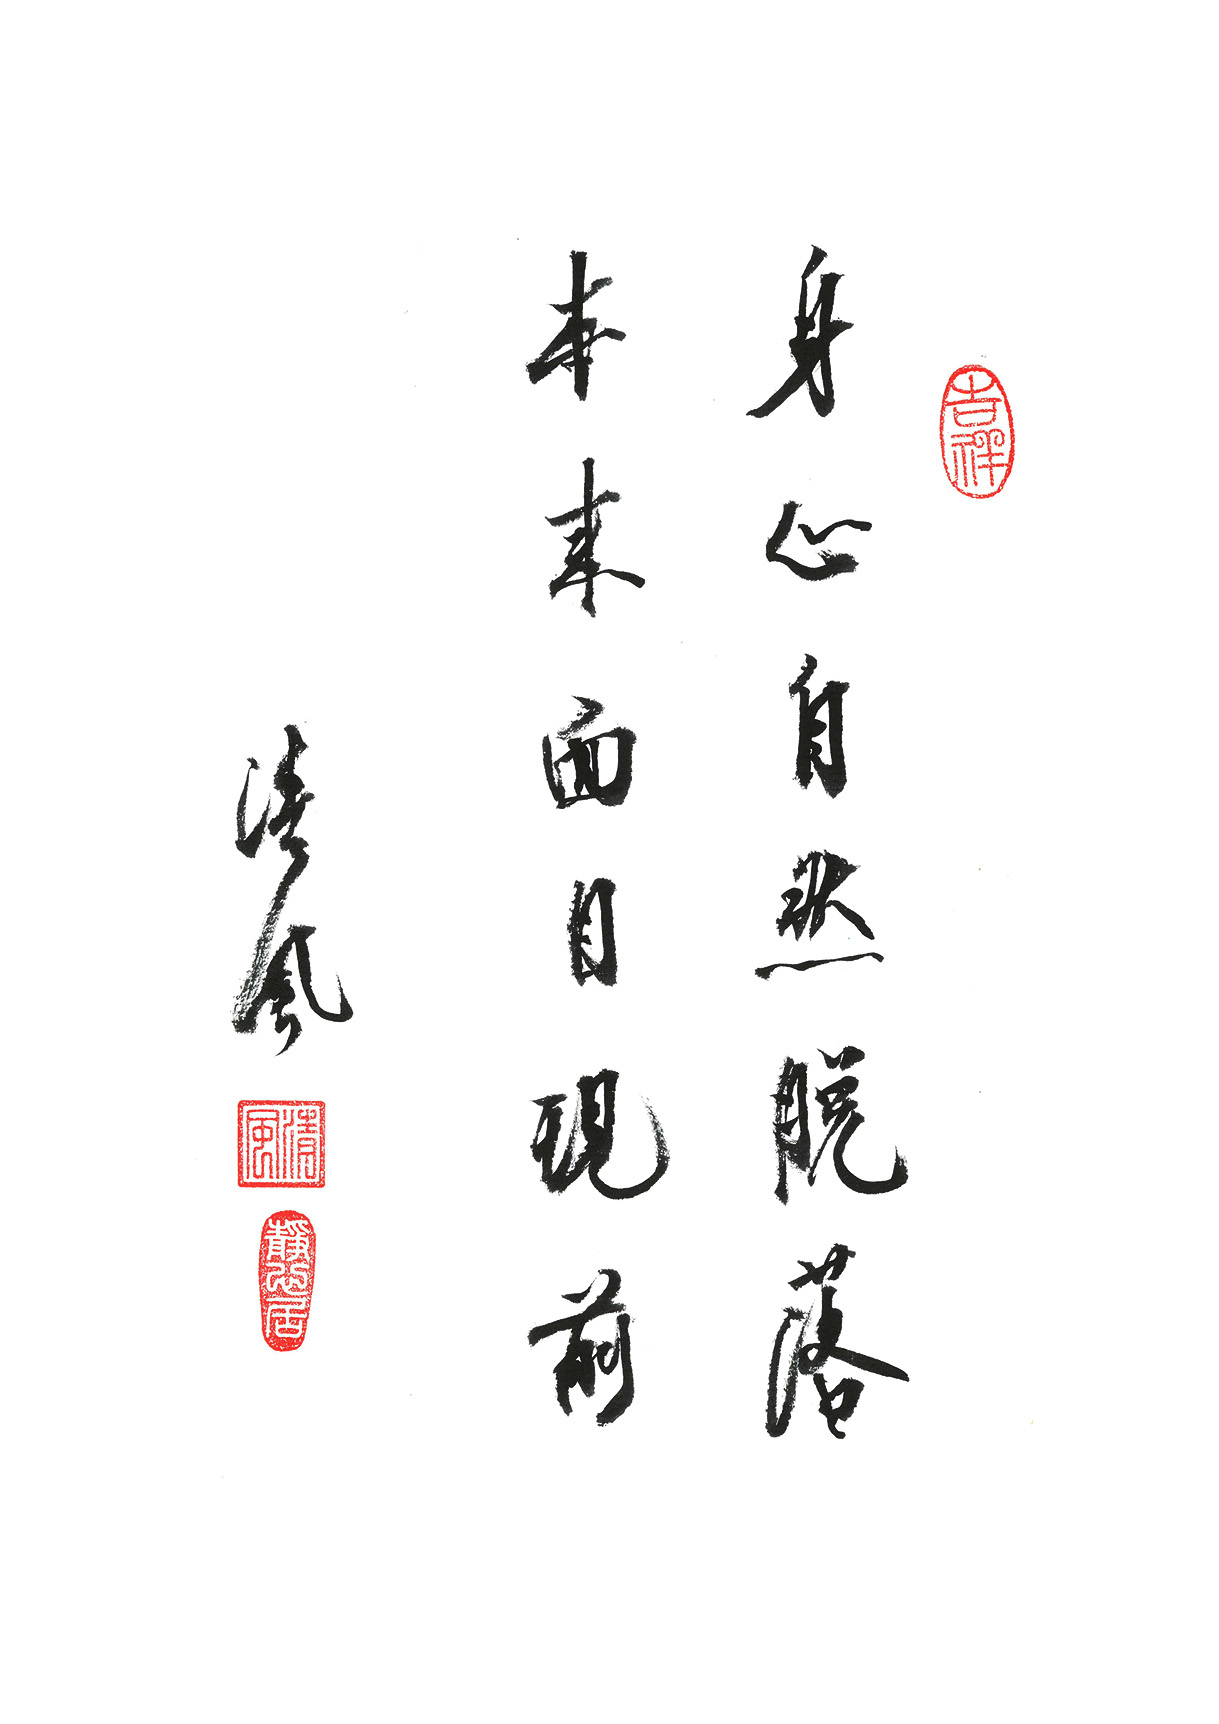 吉祥
身心自然脱落
本来面目現前
清風
清風
靜心居